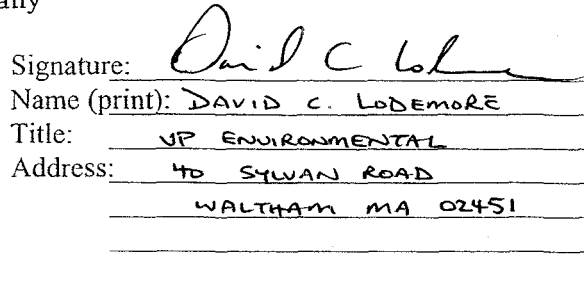 any
Signature: David C Lod
Name (print): DAVID C. LODEMORE
Title: VP ENVIRONMENTAL
Address: 40 SYLVAN ROAD
WALTHAM MA 02451